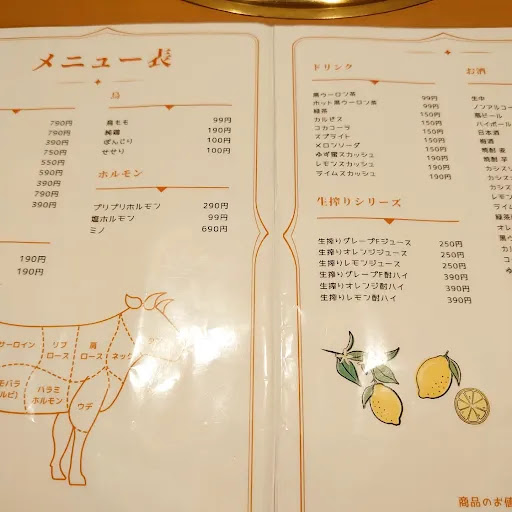 メニュー表
790円
790円
390円
750円
550円
590円
390円
790円
390円
190円
190円
鳥
鳥モモ 99円
純鶏 190円
ぼんじり 100円
せせり 100円
ホルモン
プリプリホルモン 290円
塩ホルモン 99円
ミノ 690円
サーロイン
リブロース
肩ロース
ネック
モバラ
ルビ)
ハラミ
ホルモン
ウデ
ドリンク
黒ウーロン茶 99円
ホット黒ウーロン茶 99円
緑茶 150円
カルピス 150円
コカコーラ 150円
スプライト 150円
メロンソーダ 150円
ゆず蜜スカッシュ 190円
レモンスカッシュ 190円
ライムスカッシュ 190円
生搾りシリーズ
生搾りグレープFジュース 250円
生搾りオレンジジュース 250円
生搾りレモンジュース 250円
生搾りグレープF酎ハイ 390円
生搾りオレンジ酎ハイ 390円
生搾りレモン酎ハイ 390円
お酒
生中
ノンアルコー
瓶ビール
ハイボール
日本酒
梅酒
焼酎 麦
焼酎 芋
カシス
カシス
レモン
ライム
緑茶
オレ
黒ウ
カル
コ
商品のお値